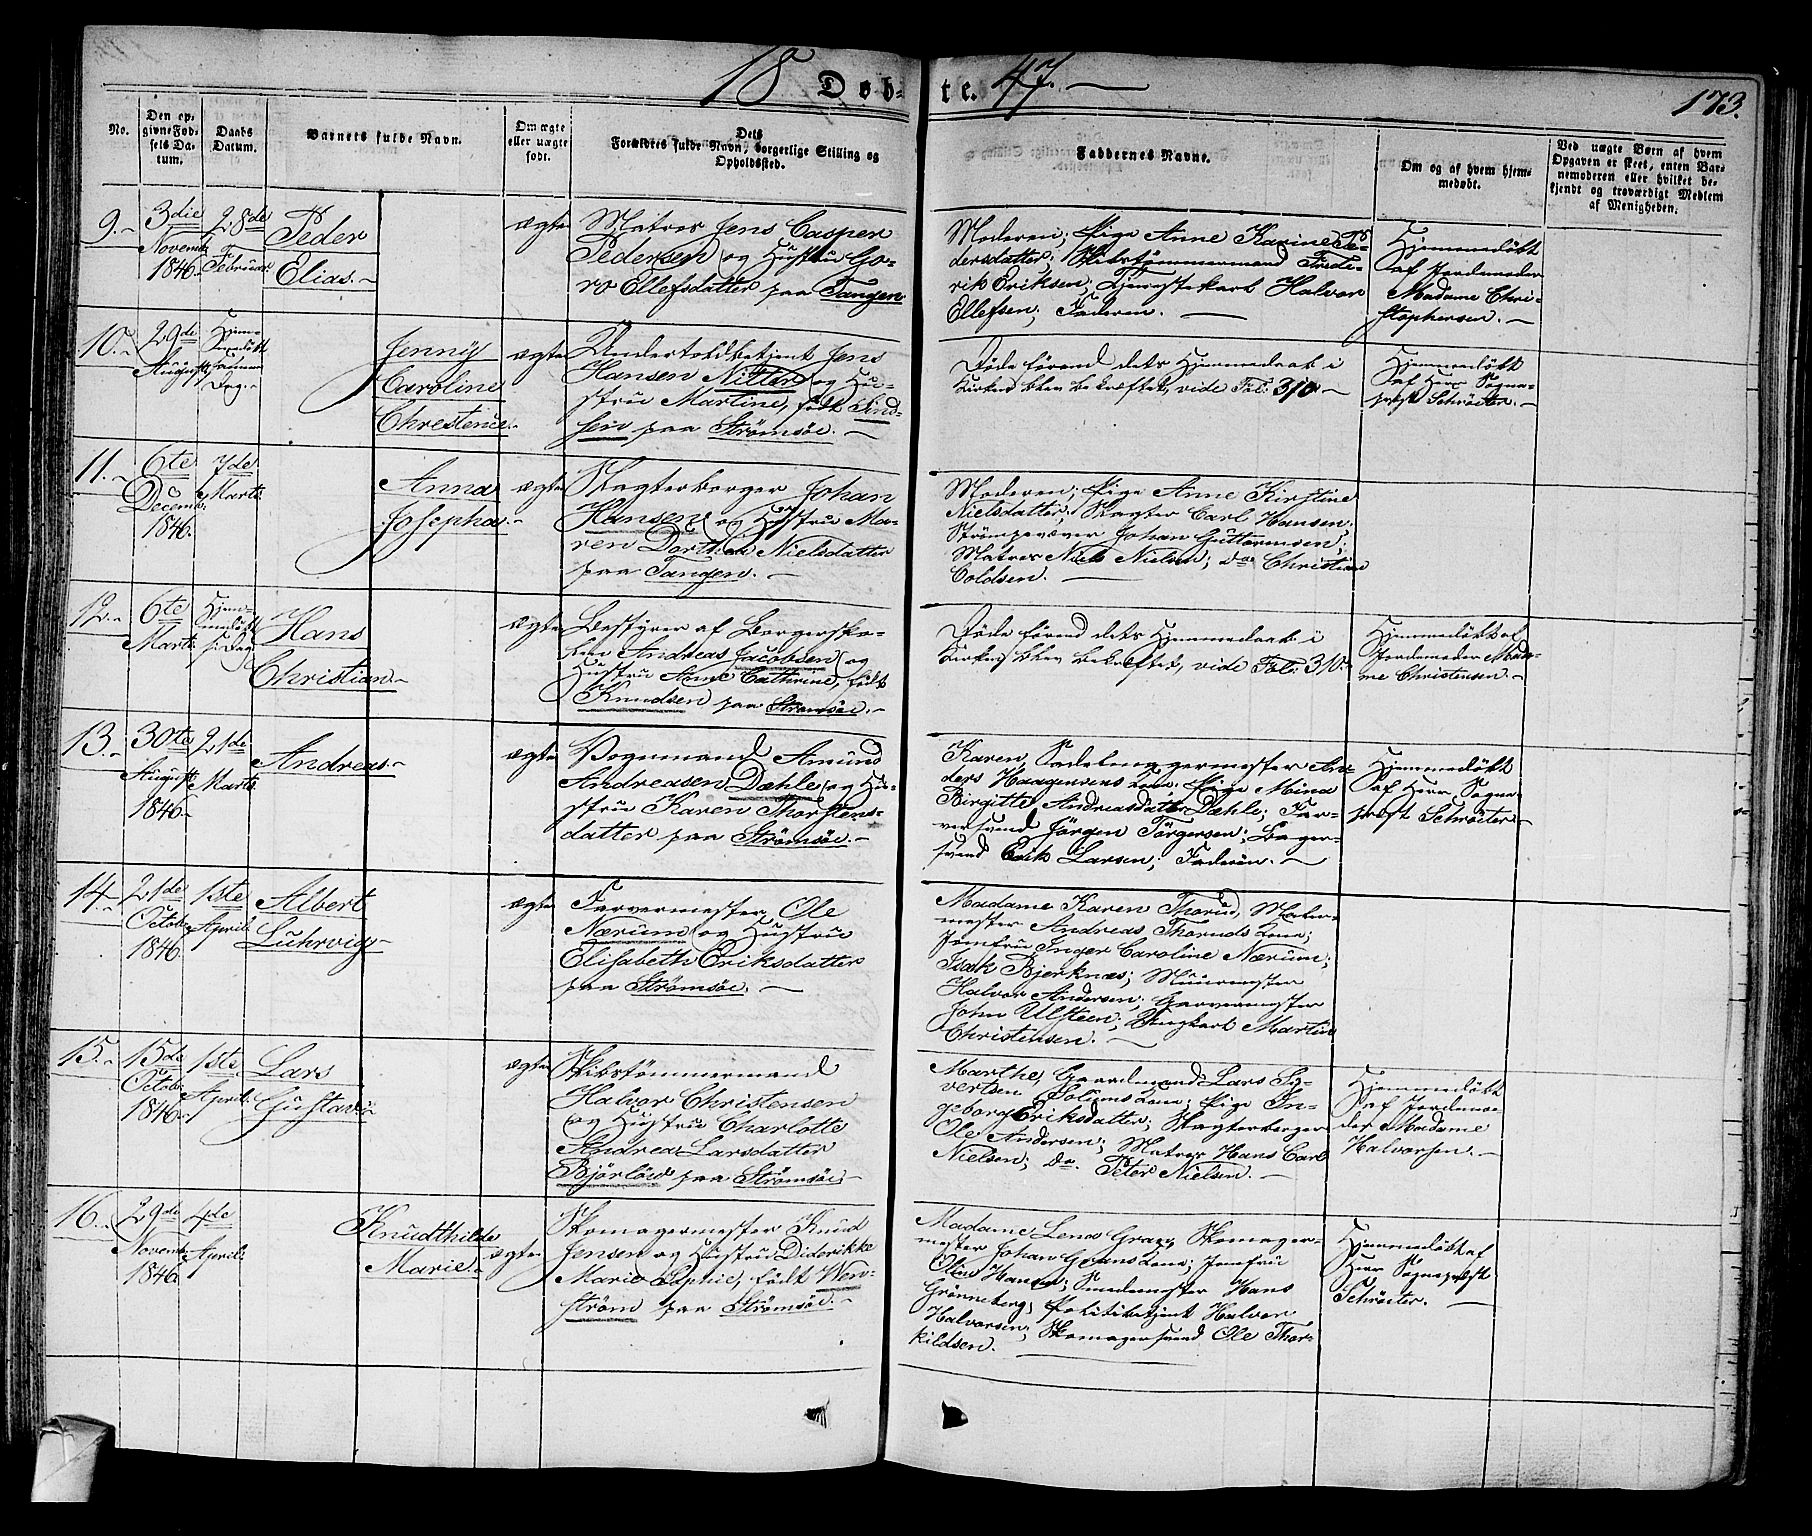 18 Døb-
te. 47.
173.
No.
Den op-
givne Fød-
sels Da-
tum.
Daabs
Datum.
Barnets fulde Navn.
Om ægte
eller uægte
født.
Dets
Forældres fulde Navn, borgerlige Stilling og
Opholdssted.
Faddernes Navne.
Om og af hvem hjem-
medøbt.
Ved uægte Børn af hvem
Opgaven er skeet, enten Bar-
nemoderen eller hvilket be-
kjendt og troværdigt Medlem
af Menigheden.
9.
3die
Novemb:
1846.
28de
Februar.
Peder
Elias.
ægte
Matros Jens Casper
Pedersen og Hustru Go-
ro Ellefsdatter paa Tangen
Moderen; Pige Anne Karine Pe-
dersdatter; Skibstømmermand Frede-
rik Eriksen; Tjenestekarl Halvor
Ellefsen; Faderen.
Hjemmedøbt
af Jordemoder
Madame Chri-
stophersen.
10.
29de
August
Hjem-
medøbt
samme
Dag.
Jenny
Caroline
Christence.
ægte
Undertoldbetjent Jens
Hansen Nitter og Hu-
strue Martine, født Lind-
sen paa Strømsøe.
Døde førend dets Hjemmedaab i
Kirken blev bekræftet, vide Fol: 310
Hjemmedøbt
af Herr Sogne-
præst Schröeter.
11.
6te
Decemb:
1846.
7de
Marts.
Anna
Josepha.
ægte
Slagterborger Johan
Hansen og Hustrue Ma-
ren Dorthea Nielsdatter
paa Tangen.
Moderen; Pige Anne Kirstine
Nielsdatter; Slagter Carl Hansen;
Strømpevæver Johan Guttormsen;
Matros Niels Nielsen; do Christian
Coldsen.
12.
6te
Marts.
Hjem-
medøbt
s. Dag.
Hans
Christian.
ægte
Bestyrer af Borgersko-
len Andreas Jacobsen og
Hustrue Anne Cathrine, født
Knudsen paa Strømsøe.
Døde førend dets Hjemmedaab i
Kirken blev bekræftet, vide Fol: 310.
Hjemmedøbt af
Jordemoder Mada-
me Christensen.
13.
30te
August
1846.
21de
Marts.
Andreas.
ægte
Vognmand Amund
Andreasen Dæhle og Hu-
strue Karen Thorstens-
datter paa Strømsøe.
Karen, Sadelmagermester An-
ders Haagensens Kone; Pige Mina
Birgitte Andreasdatter Dæhle; Far-
versvend Jörgen Törgersen; Bager-
svend Erik Larsen; Faderen.
Hjemmedøbt
af Herr Sogne-
præst Schröeter.
14.
21de
Octob:
1846.
1ste
April.
Albert
Luhrvig.
ægte
Farvermester Ole
Nærum og Hustrue
Elisabeth Eriksdatter
paa Strømsøe.
Madame Karen Thorud, Maler-
mester Andreas Thoruds Kone;
Jomfru Inger Caroline Nærum;
Isak Bjerknæs; Muurmester
Halvor Andersen; Garvermester
John Ulsteen; Ungkarl Martin
Christensen.
15.
15de
Octob:
1846.
1ste
April.
Lars
Gustav.
ægte
Skibstömmermand
Halvor Christensen
og Hustrue Charlotte
Andrea Larsdatter
Bjørløw paa Strømsøe.
Marthe, Gaardmand Lars Sy-
vertsen Solums Kone; Pige In-
geborg Eriksdatter; Slagterborger
Ole Andersen; Matros Hans Carl
Nielsen; do. Peter Nielsen.
Hjemmedøbt
af Jordemo-
der Madame
Halvorsen.
16.
29de
Novemb:
1846.
4de
April.
Knudthilde
Marie.
ægte
Skomagermester Knud
Jensen og Hustrue Diderikke
Marie Sophie, født Wen-
strøm paa Strømsøe.
Madame Lena Gran, Skomager-
mester Johan Grans Kone; Jomfru
Oline Hansen; Smedemester Hans
Grønneberg; Politibetjent Halvor
Halvorsen; Skomagersvend Ole Thor-
kildsen.
Hjemmedøbt af
Herr Sognepræst
Schröeter.